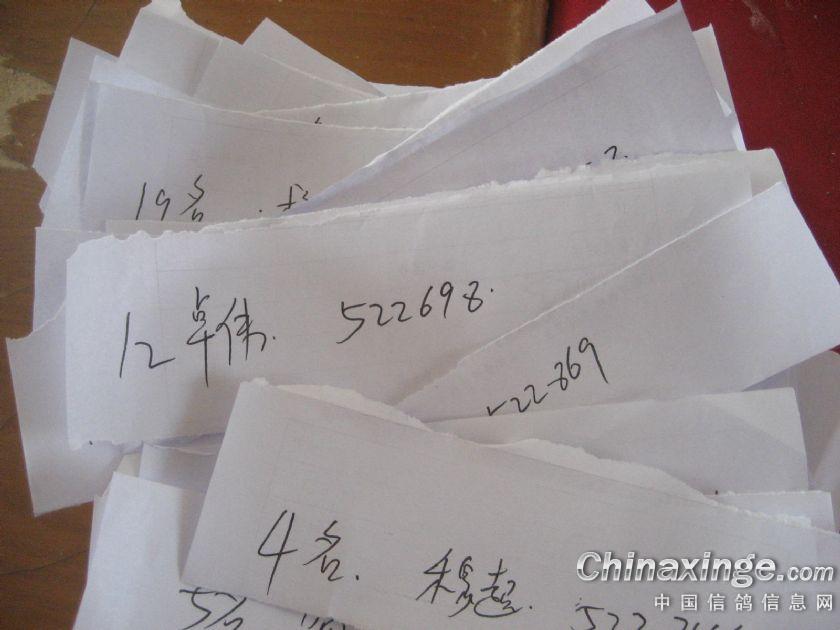 19名.
12 卓伟. 522698.
522-869
4名. 穆超. 522
Chinaxinge.com
中国信鸽信息网